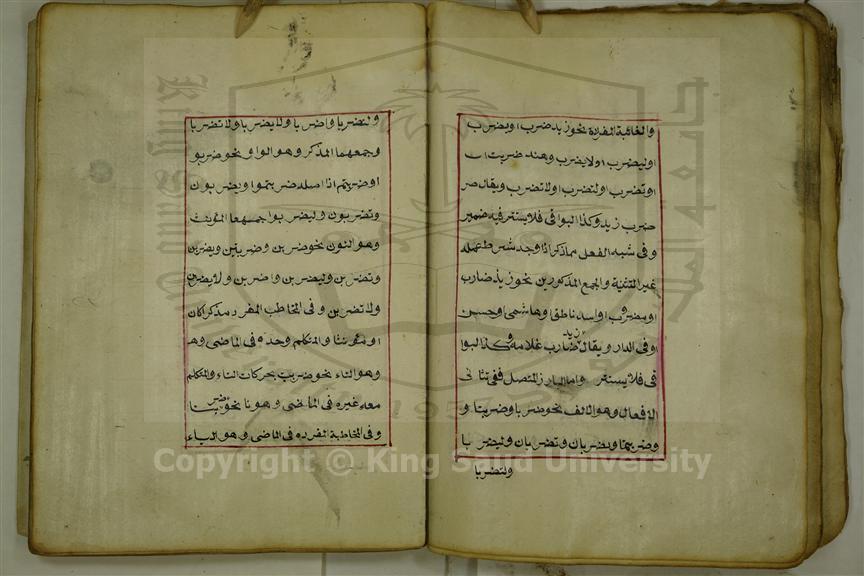 والغائبة المفردة نحو زيد ضرب او يضرب
او ليضرب او لا يضرب وهند ضربت
او تضرب او لتضرب او لا تضرب ويقال
ضرب زيد وكذا البواقى فلا يستتر فيه ضمير
وفى شبه الفعل مما ذكر اذا وجد شرط عمله
غير التثنية والجمع المذكورين نحو زيد ضارب
او مضروب او اسد ناطق وهاشمى او حسن
او فى الدار ويقال زيد ضارب غلامه وكذا البوا
قى فلا يستتر واما البارز المتصل ففى تثانى
الافعال وهو الالف نحو ضربا وضربتا و
وضربتما ويضربان وتضربان وليضربا
ولتضربا
ولتضربا واضربا ولا يضربا ولا تضربا
وجمعهما المذكر وهو الواو نحو ضربو
او ضربتم اذا اصله ضربتموا ويضربون
وتضربون وليضربوا جمعهما المؤنث
وهو النون نحو ضربن وضربتن ويضربن
وتضربن وليضربن واضربن ولا يضربن
ولا تضربن وفى المخاطب المفرد مذكرا كان
او مؤنثا والمتكلم وحده فى الماضى وهـ
وهو التاء نحو ضربت بحركات التاء والمتكلم
معه غيره فى الماضى وهو نا نحو ضربنا
وفى المخاطبة المفرده فى الماضى وهو الياء
Copyright © King Saud University
King Saud University
جامعة الملك سعود
1957